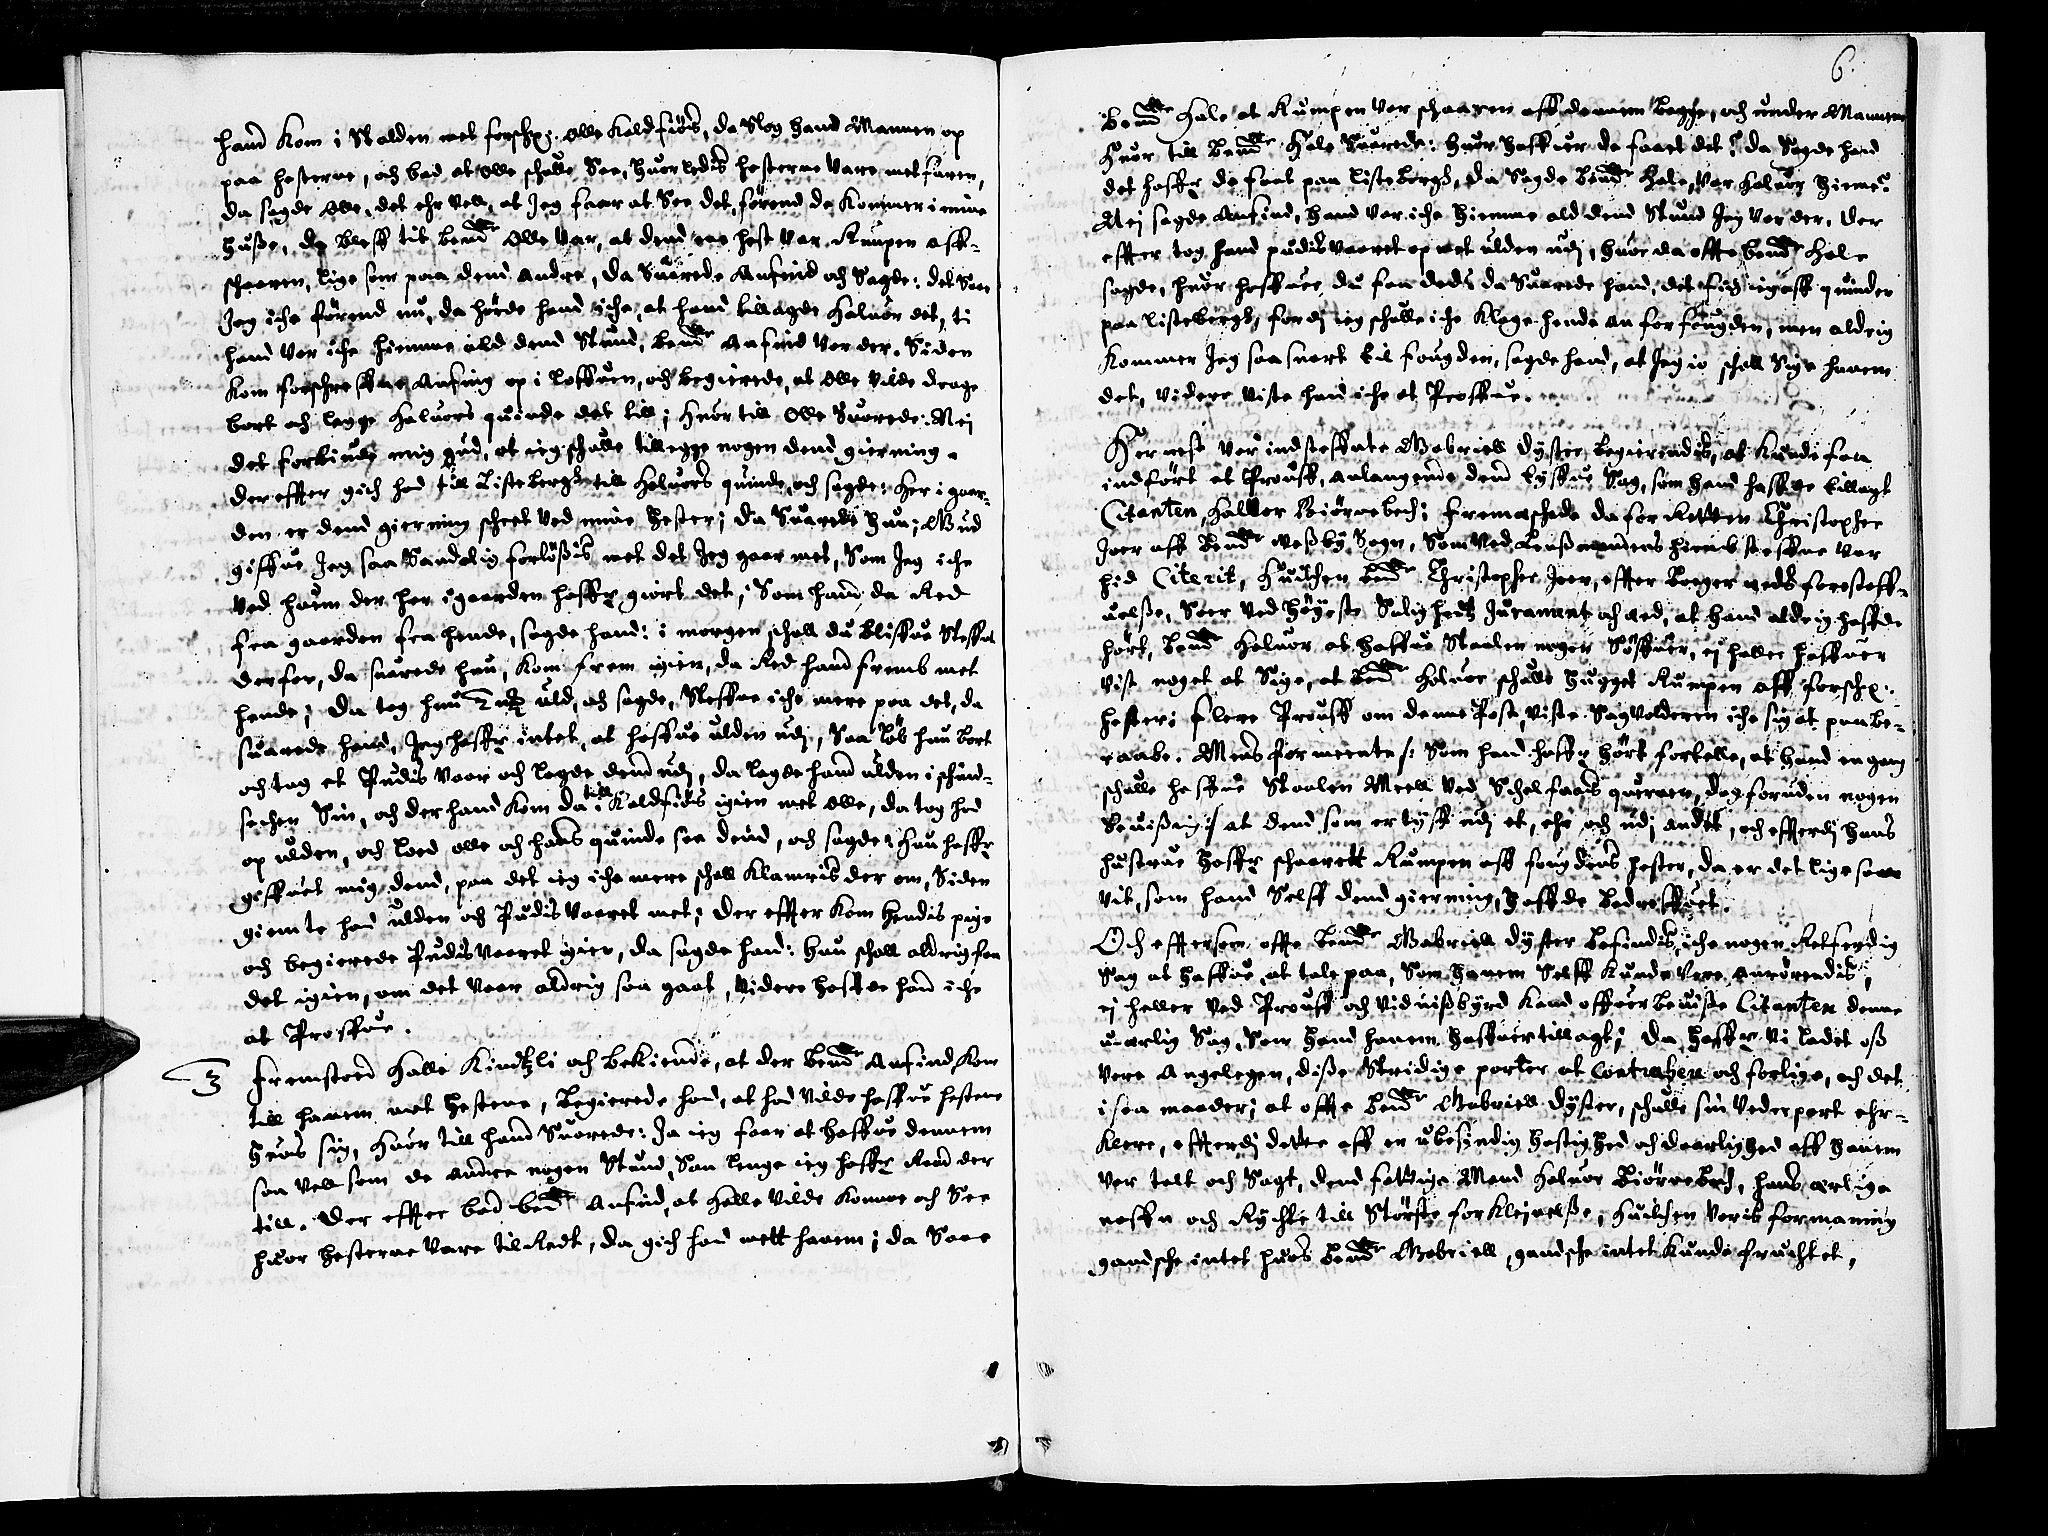 hand kom i Stalden met forschr: Olle Kaldfiös, da Slog hand Mannen op
paa hesterne, och bad at Olle schulle See, huorledis hesterne vare metfaren,
da sagde Olle, det ehr vell, at Jeg faar at See det, förend de kommer i mine
huße, da bleff til bemte Olle var, at dend ene hest var Rumpen aff-
schaaren, lige som paa dend andre, da Suarede Anfind och Sagde: det Saae
Jeg iche förend nu, da hörde hand iche, at hand tillagde Haluor det, ti
hand var iche hiemme ald dend Stund, bemte Anfind var der. Siden
kom forschreffne Anfind op i loffuen, och begierede, at Olle vilde drage
bort och legge Haluors quinde det till; huor till Olle Suarede: Nej
det forbiude mig gud, at ieg schulle tillegge nogen dend gierning.
der effter gich hand till Listebergh till Haluors quinde, och sagde: her i gaar-
den er dend gierning scheet ved mine hester; da Suarede hun; Gud
giffue Jeg saa Sandelig forlößis met det Jeg gaar met, Som Jeg iche
ved huem der her i gaarden haffr giort det, Som hand da Red
fra gaarden fra hende, sagde hand: i morgen schall du bliffue Steffnt
derfor, da suarede hun, kom frem igien, da Red hand fremb met
hende; da tog hun 2 uld, och sagde, Steffne iche mere paa det, da
suarede hand, Jeg haffr intet, at haffue ulden udj, Saa löb hun bort
och tog et Pudis vaar och lagde dend udj, da lagde hand ulden i schind-
sechen Sin, och der hand kom da till Kaldfiös igien met Olle, da tog hand
op ulden, och loed Olle och hans quinde see dend, och sagde: hun haffr
giffuet mig dend, paa det ieg iche mere schall klamris der om, Siden
giemte hand ulden och Pudis vaaret met; der effter kom hendis pige
och begierede Pudis vaaret igien, da sagde hand: hun schall aldrig faa
det igien, om det vaar aldrig saa gaat, videre haffde hand iche
at Proffue.
3 Fremstoed Halle Kindtzli och bekiende, at der bemte Anfind kom
till hannem met hestene, begierede hand, at hand vilde haffue hestene
huos sig, huor till hand Suarede: Ja ieg faar at haffue dennem
saa vell som de andre nogen Stund, Saa lenge ieg haffr Raad der
till. der effter bad bemte Anfind, at Halle vilde komme och See
huor hesterne vare til Redt, da gich hand mett hanem; da Saae
6.
bemte Hale at Rumpen var schaaren aff dennem begge, och under Mannen
huor till bemte Hale Suarede: huor haffuer de faaet det? da Sagde hand
det haffr de faat paa Listebergh, da Sagde bemte Hale, var Haluor hieme?
Nej sagde Anfind, hand var iche hiemme ald dend Stund Jeg var der. der
effter tog hand pudis vaaret op met ulden udj, huor da offte bemte Hale
sagde, huor haffuer du faa det? da Suarede hand, det fich ieg aff quinden
paa Listebergh, fordj ieg schulle iche klage hende an for fougden, men aldrig
kommer Jeg saa snart til fougden, sagde hand, at Jeg io schall Sige hanem
det, videre viste hand iche at Proffue.
Hernest var indsteffnte Gabriell Dyster begierendis, at kunde faa
indfört et Prouff, anlangende dend tyffue Sag, som hand haffuer tillagt
Citanten, Haluor Biörnebech; fremeschede da for Retten Christopher
Iuer aff bemte Neßby Sogn, Som ved Lensmandens hiemb steffne var
hid Citerit, huilchen bemte Christopher Iuer, effter boeger eeds forestaff-
uelße, Soer ved höÿeste Salighedz Jurament och aed, at hand aldrig haffde
hört, bemte Haluor at haffue Staalen nogen Söffuer, ej heller haffuer
vist noget at Sige, at bemte Haluor schulle hugget Rumpen aff forschr:
hester; flere Prouff om denne Post, viste Sagvolderen iche sig at paabe-
raabe. Mens formeente /: Som hand haffr hört fortelle, at hand engang
schulle haffue Staalen Meell ved Schelfaas querner, dog foruden nogen
beuisning :/ at dend, som er tyff udj et, ehr och udj andet, och effterdj hans
hustrue haffr schaarett Rumpen aff fougdens hester, da er det lige saa
vit, som hand Selff dend gierning, haffde bedreffuet.
Och effterson offte bemte Gabriell Dyster befindis iche nogen Retferdig
Sag at haffue, at tale paa, Som hanem Selff kunde vere anrörendis,
ej heller ved Prouff och vidnißbyrd kand offuer beuiße Citanten denne
uærlig Sag, Som hand hanem haffuer tillagt; da haffr vi ladet oß
vere Angelegen, diße Stridige parter at Contrahere och forlige, och det
i saa maader; at offte bemte Gabriell Dyster, schulle sin vederpart ehr-
klere, effterdj dette aff en ubesindig hastighed och daarlighed aff hanem
var talt och Sagt, dend fattige Mand Haluor Biörnebech, hans ærlige
naffn och Rychte till Störste forklejnelße, huilchen voris formaning
gandsche intet huos bemte Gabriell, gandsche intet kunde fruchtet,